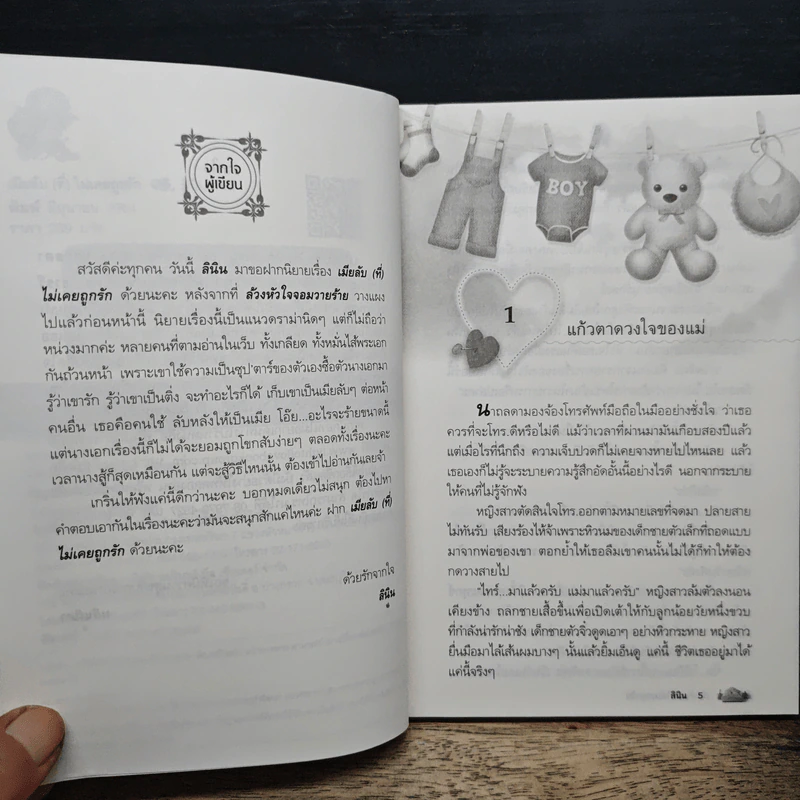 จากใจ
ผู้เขียน
สวัสดีค่ะทุกคน วันนี้ ลินิน มาขอฝากนิยายเรื่อง เมียลับ (ที่)
ไม่เคยถูกรัก ด้วยนะคะ หลังจากที่ ล้วงหัวใจจอมวายร้าย วางแผง
ไปแล้วก่อนหน้านี้ นิยายเรื่องนี้เป็นแนวดราม่านิดๆ แต่ก็ไม่ถือว่า
หน่วงมากค่ะ หลายคนที่ตามอ่านในเว็บ ทั้งเกลียด ทั้งหมั่นไส้พระเอก
กันถ้วนหน้า เพราะเขาใช้ความเป็นซุป'ตาร์ของตัวเองซื้อตัวนางเอกมา
รู้ว่าเขารัก รู้ว่าเขาเป็นติ่ง จะทำอะไรก็ได้ เก็บเขาเป็นเมียลับๆ ต่อหน้า
คนอื่น เธอคือคนใช้ ลับหลังให้เป็นเมีย โอ๊ย...อะไรจะร้ายขนาดนี้
แต่นางเอกเรื่องนี้ก็ไม่ได้จะยอมถูกโขกสับง่ายๆ ตลอดทั้งเรื่องนะคะ
เวลานางสู้ก็สุดเหมือนกัน แต่จะสู้วิธีไหนนั้น ต้องเข้าไปอ่านกันเลยจ้า
เกริ่นให้ฟังแค่นี้ดีกว่านะคะ บอกหมดเดี๋ยวไม่สนุก ต้องไปหา
คำตอบเอากันในเรื่องนะคะว่ามันจะสนุกสักแค่ไหนค่ะ ฝาก เมียลับ (ที่)
ไม่เคยถูกรัก ด้วยนะคะ
ด้วยรักจากใจ
ลินิน
BOY
1
แก้วตาดวงใจของแม่
นาถลดามองจ้องโทรศัพท์มือถือในมืออย่างชั่งใจ ว่าเธอ
ควรที่จะโทร.ดีหรือไม่ดี แม้ว่าเวลาที่ผ่านมามันเกือบสองปีแล้ว
แต่เมื่อไรที่นึกถึง ความเจ็บปวดก็ไม่เคยจางหายไปไหนเลย แล้ว
เธอเองก็ไม่รู้จะระบายความรู้สึกอัดอั้นนี้อย่างไรดี นอกจากระบาย
ให้คนที่ไม่รู้จักฟัง
หญิงสาวตัดสินใจโทร.ออกตามหมายเลขที่จดมา ปลายสาย
ไม่ทันรับ เสียงร้องไห้จ้าเพราะหิวนมของเด็กชายตัวเล็กที่ถอดแบบ
มาจากพ่อของเขา ตอกย้ำให้เธอลืมเขาคนนั้นไม่ได้ก็ทำให้ต้อง
กดวางสายไป
"ไทร์...มาแล้วครับ แม่มาแล้วครับ" หญิงสาวล้มตัวลงนอน
เคียงข้าง ถลกชายเสื้อขึ้นเพื่อเปิดเต้าให้กับลูกน้อยวัยหนึ่งขวบ
ที่กำลังน่ารักน่าชัง เด็กชายตัวจิ๋วดูดเอาๆ อย่างหิวกระหาย หญิงสาว
ยื่นมือมาไล้เส้นผมบางๆ นั้นแล้วยิ้มเอ็นดู แค่นี้ ชีวิตเธออยู่มาได้
แค่นี้จริงๆ
ลินิน 5